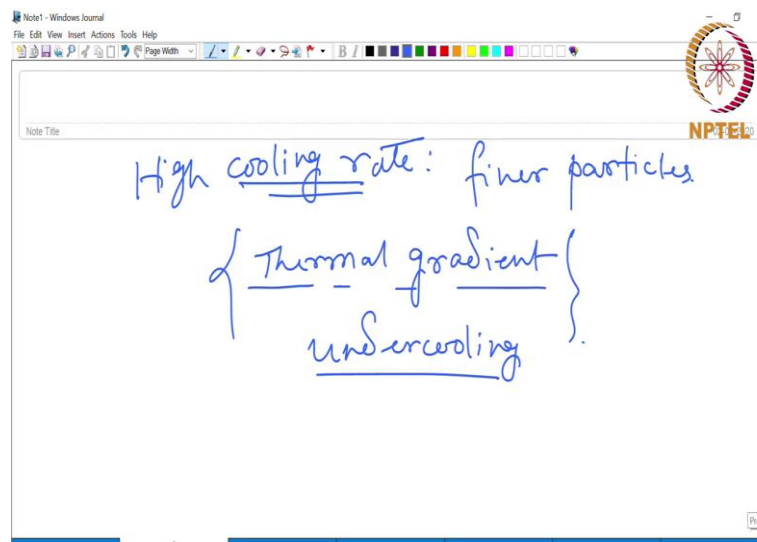 Note1 - Windows Journal
File Edit View Insert Actions Tools Help
Page Width
B I
Note Title
NPTEL
High cooling rate: finer particles
Thermal gradient
undercooling